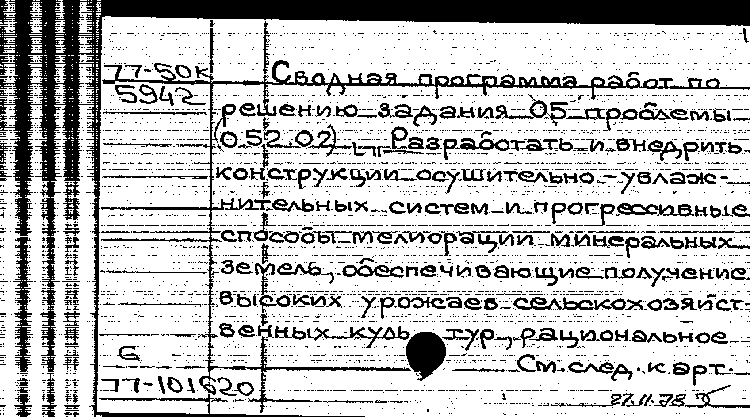 77-50к Сводная программа работ по
5942 решению задания 05 проблемы
(0.52.02) "Разработать и внедрить
конструкции осушительно-увлаж-
нительных систем и прогрессивные
способы мелиорации минеральных
земель, обеспечивающие получение
высоких урожаев сельскохозяйст-
венных культур, рациональное
G См. след. карт.
77-101620
27.11.78